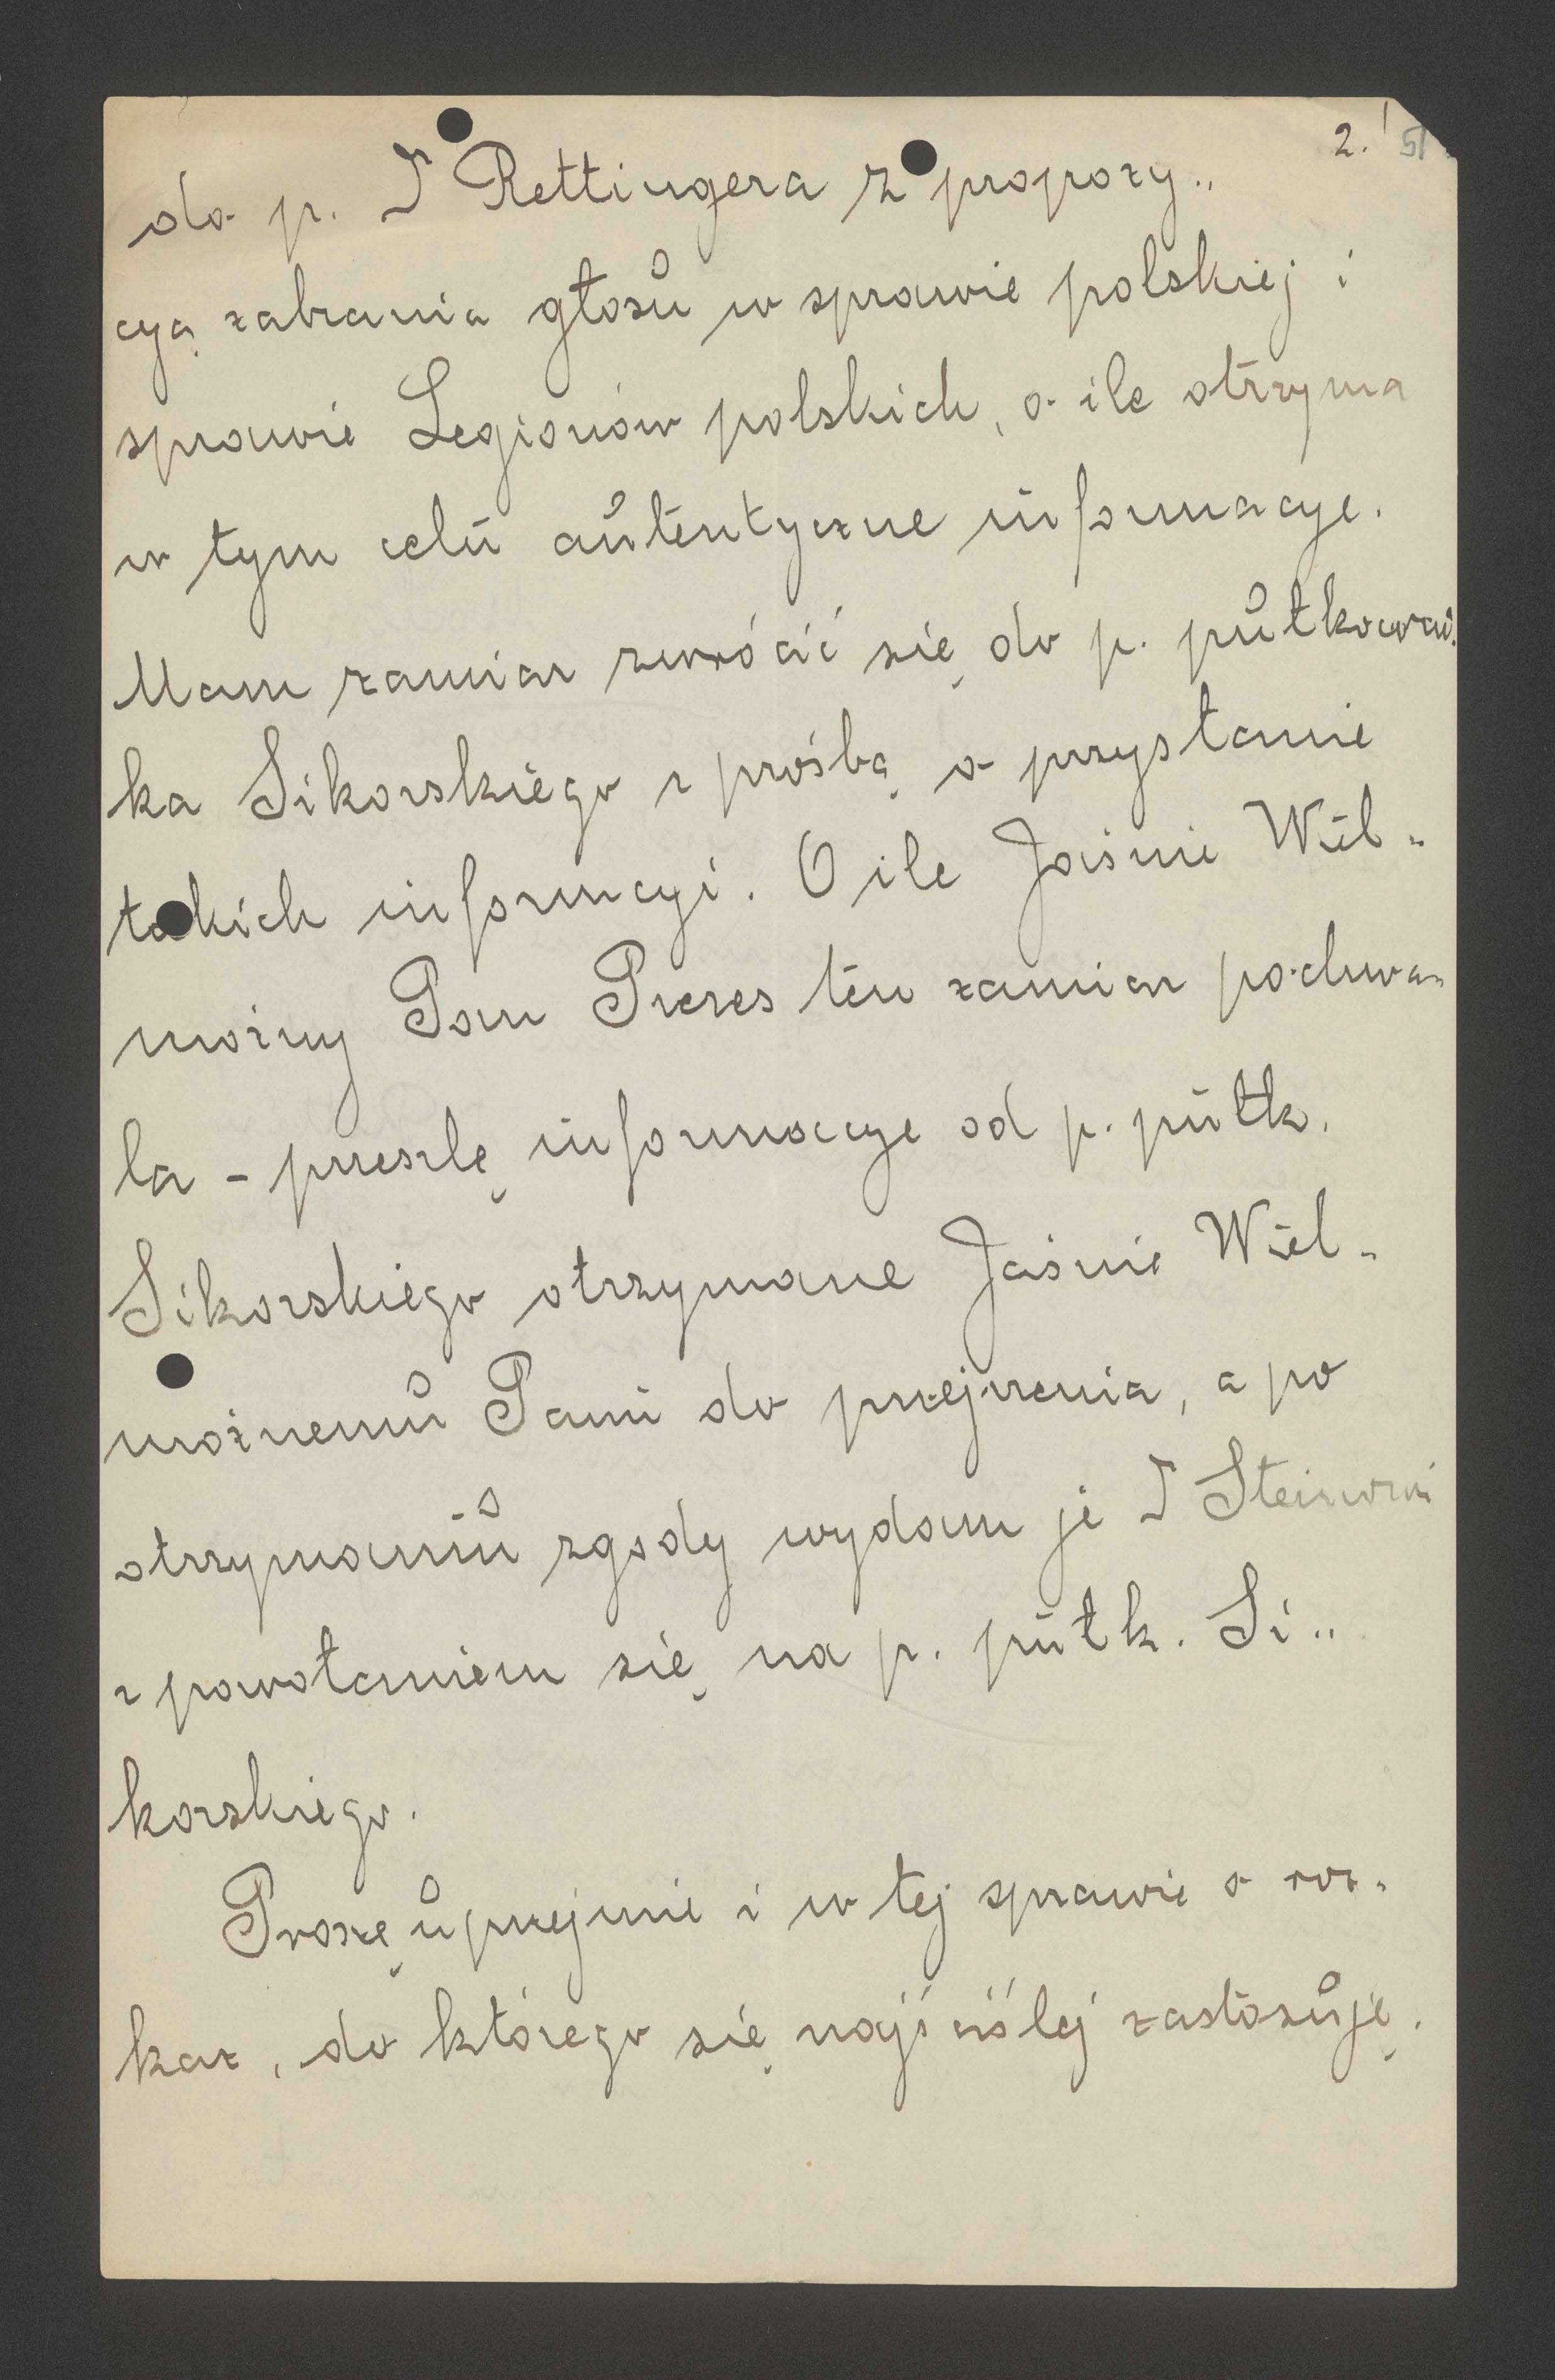 2. 51
do p. J Rettingera z propozy„
cyą zabrania głosu w sprawie polskiej i
sprawie Legionów polskich, o ile otrzyma
w tym celu autentyczne informacye.
Mam zamiar zwrócić się do p. pułkowni„
ka Sikorskiego z prośbą o przysłanie
takich informcyi. O ile Jaśnie Wiel„
możny Pan Prezes ten zamiar pochwa„
la – prześlę informacye od p. pułk.
Sikorskiego otrzymane Jaśnie Wiel„
możnemu Panu do przejrzenia, a po
otrzymaniu zgody wydam je J
z powołaniem się na p. pułk. Si„
korskiego.
Proszę uprzejmie i w tej sprawie o roz„
kaz, do którego się najściślej zastosuję.